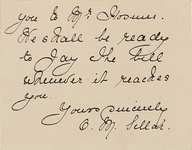 you to Mr Hosmer.
We shall be ready
to pay the bill
whenever it reaches
you.
Yours sincerely
C. M. Sellar.